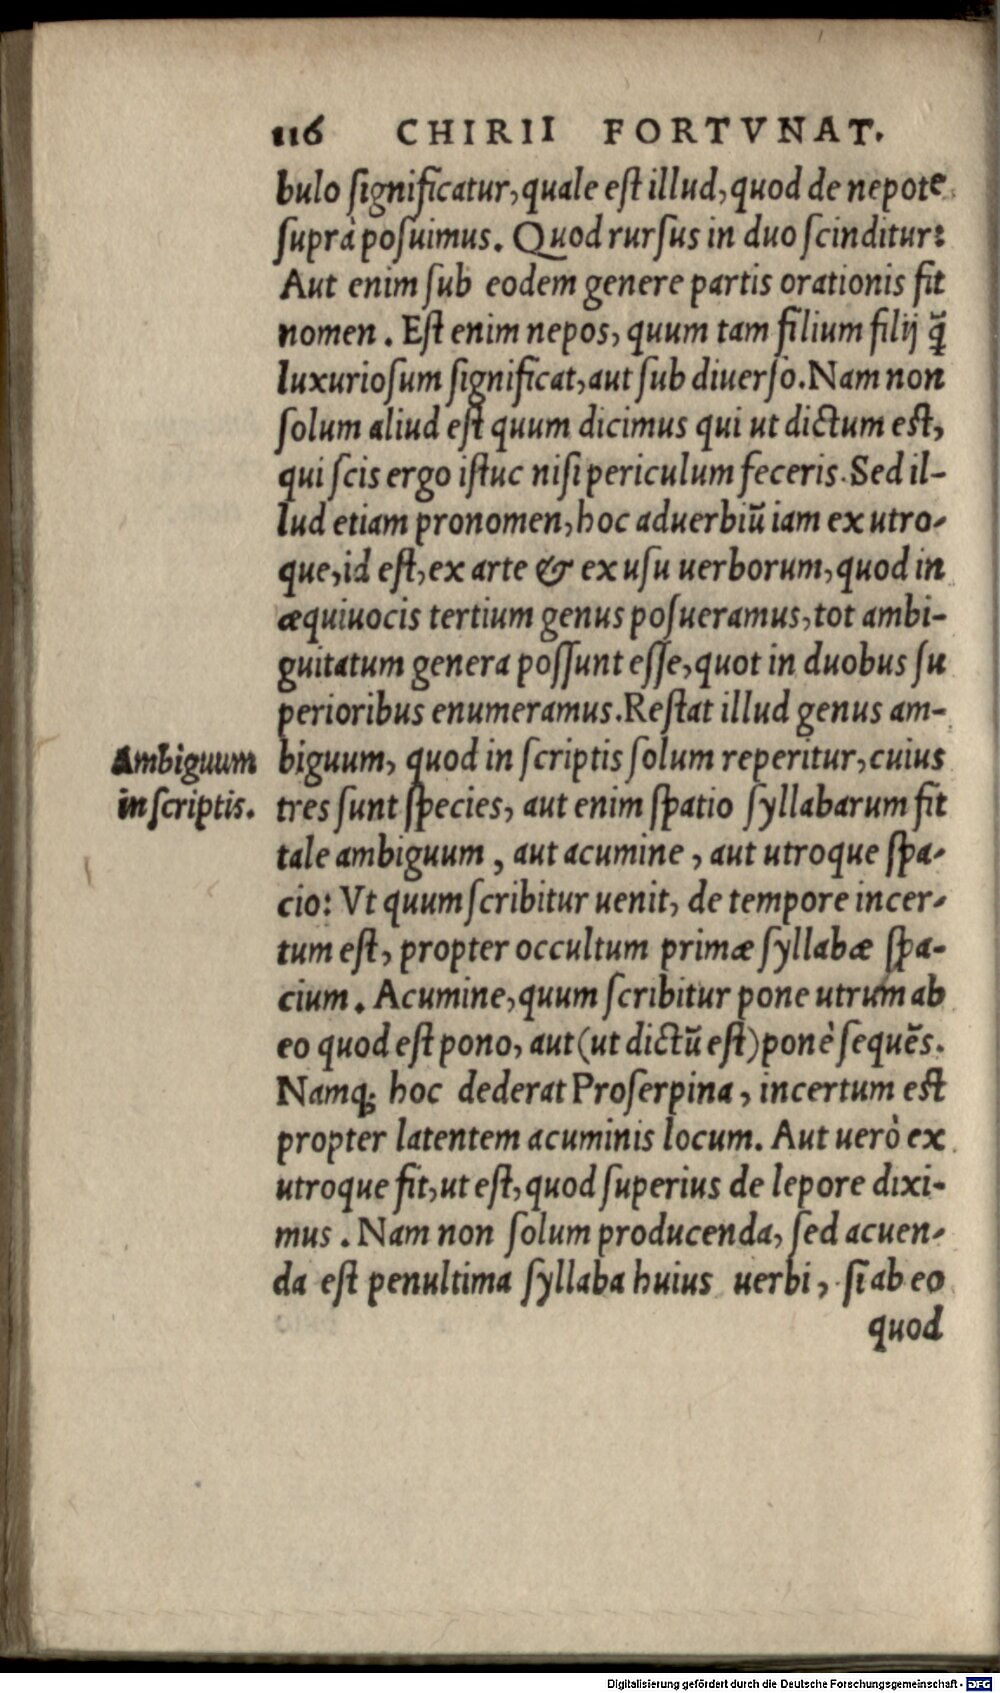 116 CHIRII FORTVNAT.
bulo ſignificatur, quale eſt illud, quod de nepote
ſuprà poſuimus. Quod rurſus in duo ſcinditur:
Aut enim ſub eodem genere partis orationis fit
nomen. Eſt enim nepos, quum tam filium filij q̃
luxurioſum ſignificat, aut ſub diuerſo. Nam non
ſolum aliud eſt quum dicimus qui ut dictum eſt,
qui ſcis ergo iſtuc niſi periculum feceris. Sed il-
lud etiam pronomen, hoc aduerbiũ iam ex utro-
que, id eſt, ex arte & ex uſu uerborum, quod in
æquiuocis tertium genus poſueramus, tot ambi-
guitatum genera poſſunt eſſe, quot in duobus ſu
perioribus enumeramus. Reſtat illud genus am-
Ambiguum
in ſcriptis.
biguum, quod in ſcriptis ſolum reperitur, cuius
tres ſunt ſpecies, aut enim ſpatio ſyllabarum fit
tale ambiguum, aut acumine, aut utroque ſpa-
cio: Vt quum ſcribitur uenit, de tempore incer-
tum eſt, propter occultum primæ ſyllabæ ſpa-
cium. Acumine, quum ſcribitur pone utrum ab
eo quod eſt pono, aut (ut dictũ eſt) ponè ſequẽs.
Namq; hoc dederat Proſerpina, incertum eſt
propter latentem acuminis locum. Aut uerò ex
utroque fit, ut eſt, quod ſuperius de lepore dixi-
mus. Nam non ſolum producenda, ſed acuen-
da eſt penultima ſyllaba huius uerbi, ſi ab eo
quod
Digitalisierung gefördert durch die Deutsche Forschungsgemeinschaft - DFG